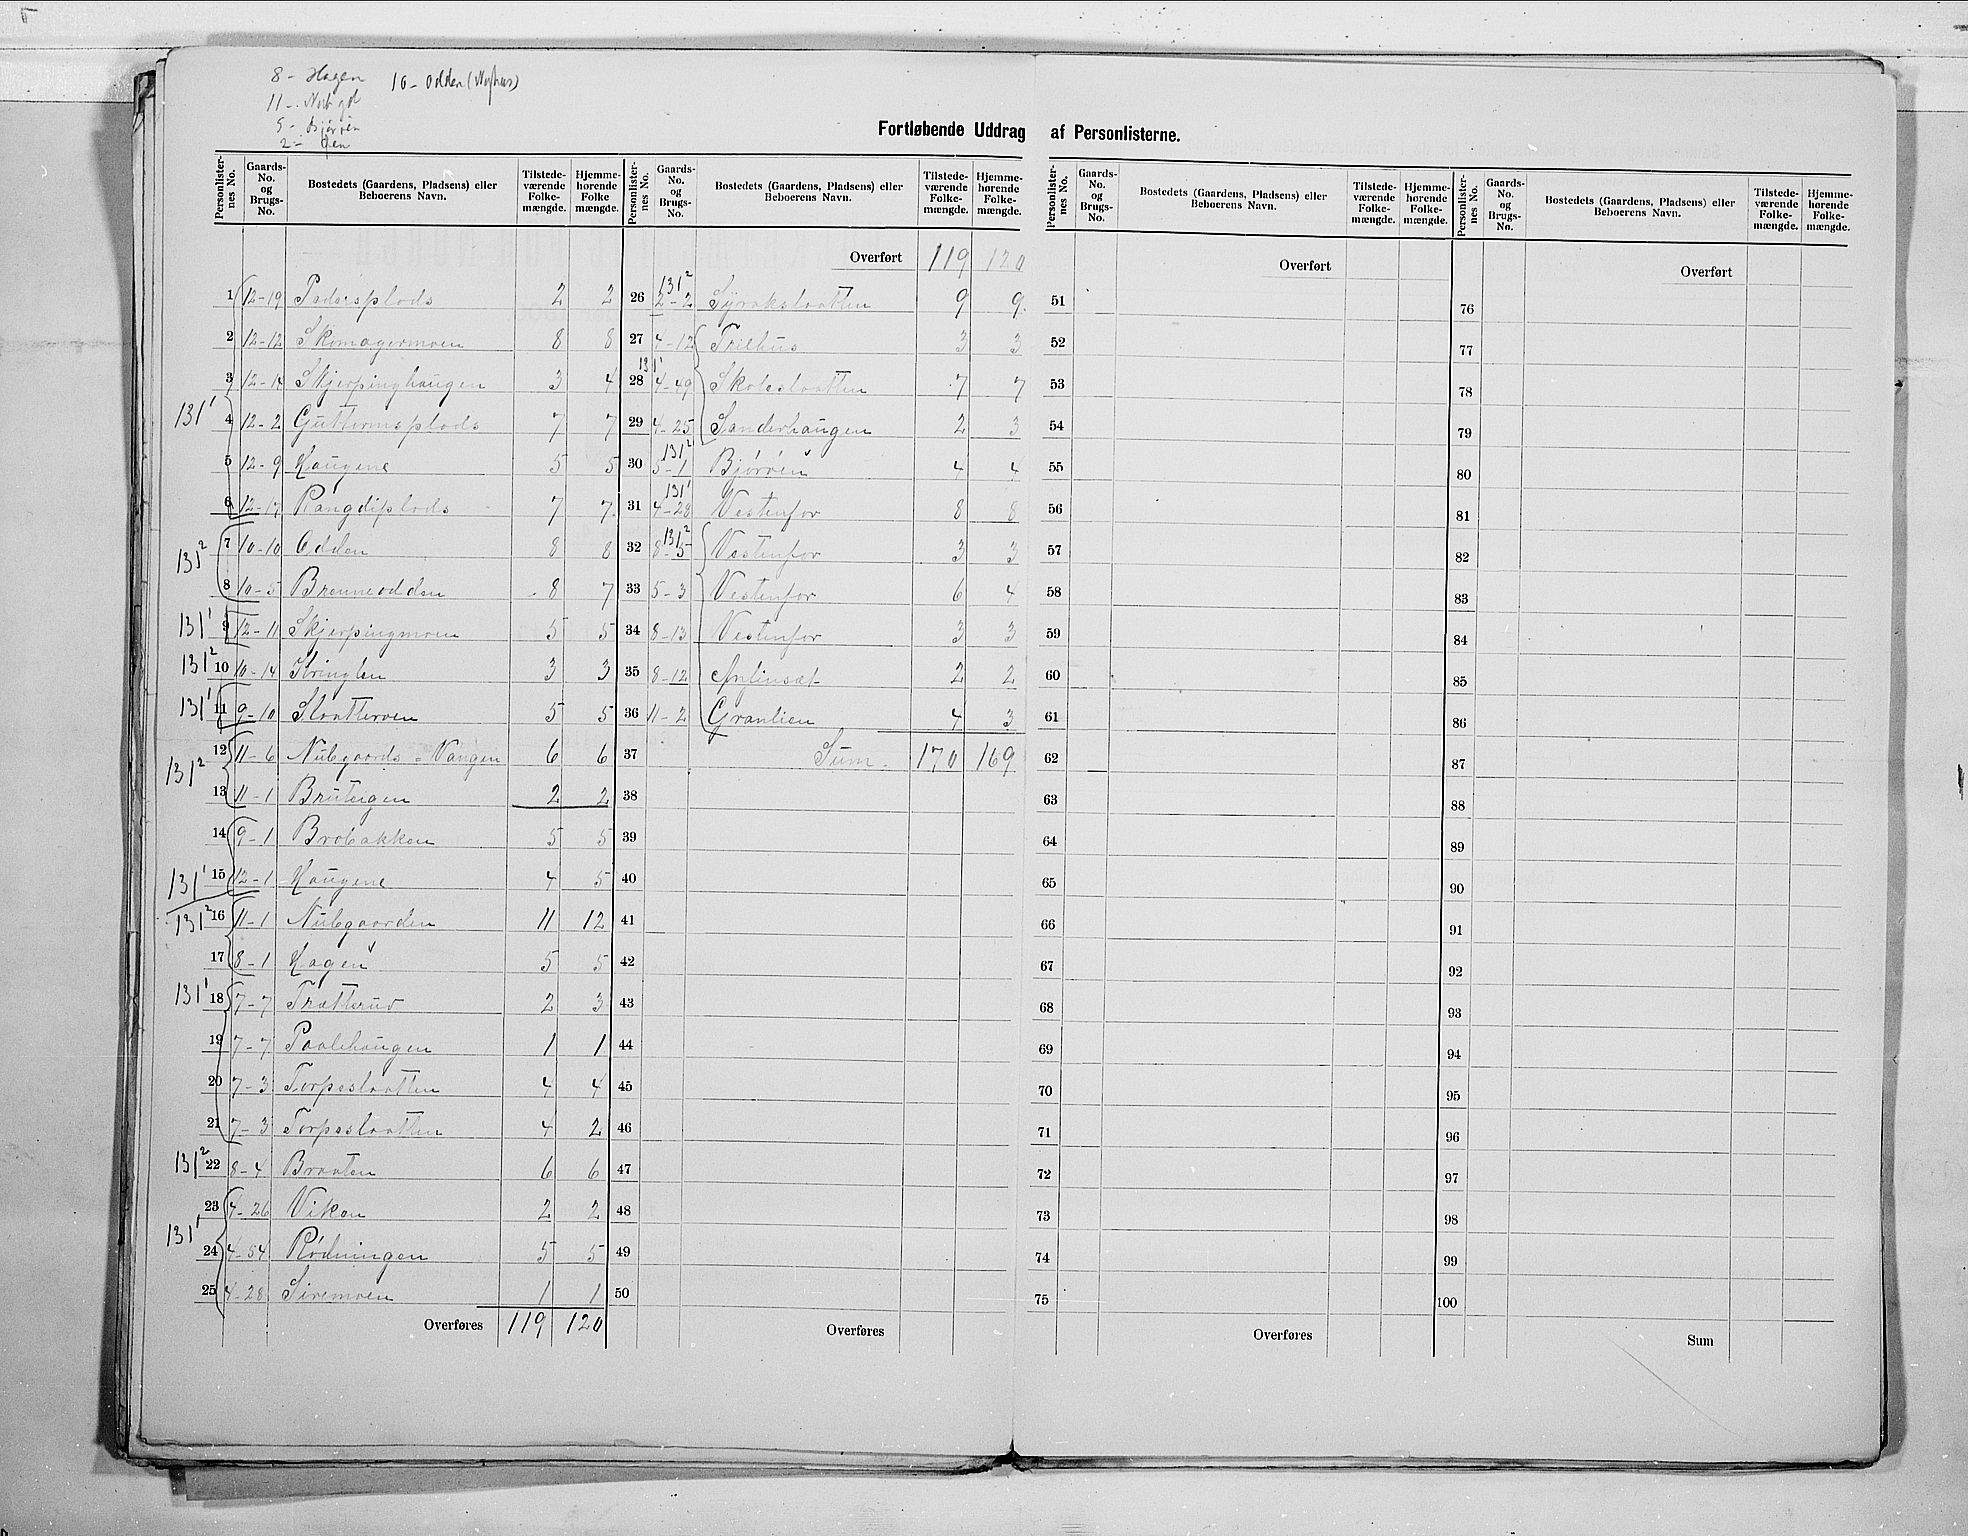 8 - Hagen 10 - Odden (Nyhus)
11 - Nubgd
5 - Bjørøen
2 -
Fortløbende Uddrag af Personlisterne.
Personlister-nes No. Gaards-No. og Brugs-No. Bostedets (Gaardens, Pladsens) eller Beboerens Navn. Tilstede-værende Folke-mængde. Hjemme-hørende Folke mængde.
131¹ 1 12-19 Pedersplads 2 2
2 12-12 Skomagermoen 8 8
3 12-14 Skjerpinghaugen 3 4
4 12-2 Guttormsplads 7 7
5 12-9 Haugene 5 5
6 12-17 Rangdiplads 7 7
131² 7 10-10 Odden 8 8
8 10-5 Brenneodden 8 7
131¹ 9 12-11 Skjerpingmoen 5 5
131² 10 10-14 Kringlen 3 3
131¹ 11 9-10 Slaatterøen 5 5
131² 12 11-6 Nubgaards=Vangen 6 6
13 11-1 Bruteigen 2 2
14 9-1 Brobakken 5 5
131¹ 15 12-1 Haugene 4 5
131² 16 11-1 Nubgaarden 11 12
17 8-1 Hagen 5 5
131¹ 18 7-7 Trætterud 2 3
19 7-7 Paalehaugen 1 1
20 7-3 Torpeslaatten 4 4
21 7-3 Torpeslaatten 4 2
131² 22 8-4 Braaten 6 6
131¹ 23 4-26 Viken 2 2
24 4-54 Rødningen 5 5
25 4-28 Siremoen 1 1
Overføres 119 120
Personlister-nes No. Gaards-No. og Brugs-No. Bostedets (Gaardens, Pladsens) eller Beboerens Navn. Tilstede-værende Folke-mængde. Hjemme-hørende Folke-mængde.
Overført 119 120
26 131² 2-2 Syrakslaatten 9 9
27 4-12 Trilhus 3 3
28 131¹ 4-49 Skoleslaatten 7 7
29 4-25 Sanderhaugen 2 3
30 131² 5-1 Bjørøen 4 4
31 131¹ 4-23 Vestenfor 8 8
32 131² 8-5 Vestenfor 3 3
33 5-3 Vestenfor 6 4
34 8-13 Vestenfor 3 3
35 8-12 2 2
36 11-2 Granlien 4 3
37 Sum. 170 169
38
39
40
41
42
43
44
45
46
47
48
49
50
Overføres
Personlister-nes No. Gaards-No. og Brugs-No. Bostedets (Gaardens, Pladsens) eller Beboerens Navn. Tilstede-værende Folke-mængde. Hjemme-hørende Folke-mængde.
Overført
51
52
53
54
55
56
57
58
59
60
61
62
63
64
65
66
67
68
69
70
71
72
73
74
75
Overføres
Personlister-nes No. Gaards-No. og Brugs-No. Bostedets (Gaardens, Pladsens) eller Beboerens Navn. Tilstede-værende Folke-mængde. Hjemme-hørende Folke-mængde.
Overført
76
77
78
79
80
81
82
83
84
85
86
87
88
89
90
91
92
93
94
95
96
97
98
99
100
Sum